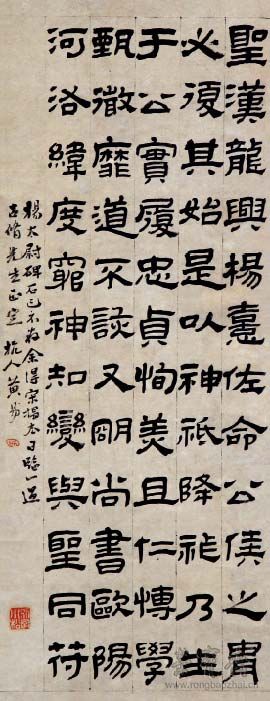 聖漢龍興楊憙佐命公侯之胄
必復其始是以神祇降祉乃生
于公實履忠貞恂美且仁愽學
甄微靡道不該又明尚書歐陽
河洛緯度窮神知變與聖同符
楊太尉碑石已不存余得宋搨本日臨一過
先生正 杭人黃易
www.rongbaozhai.cn